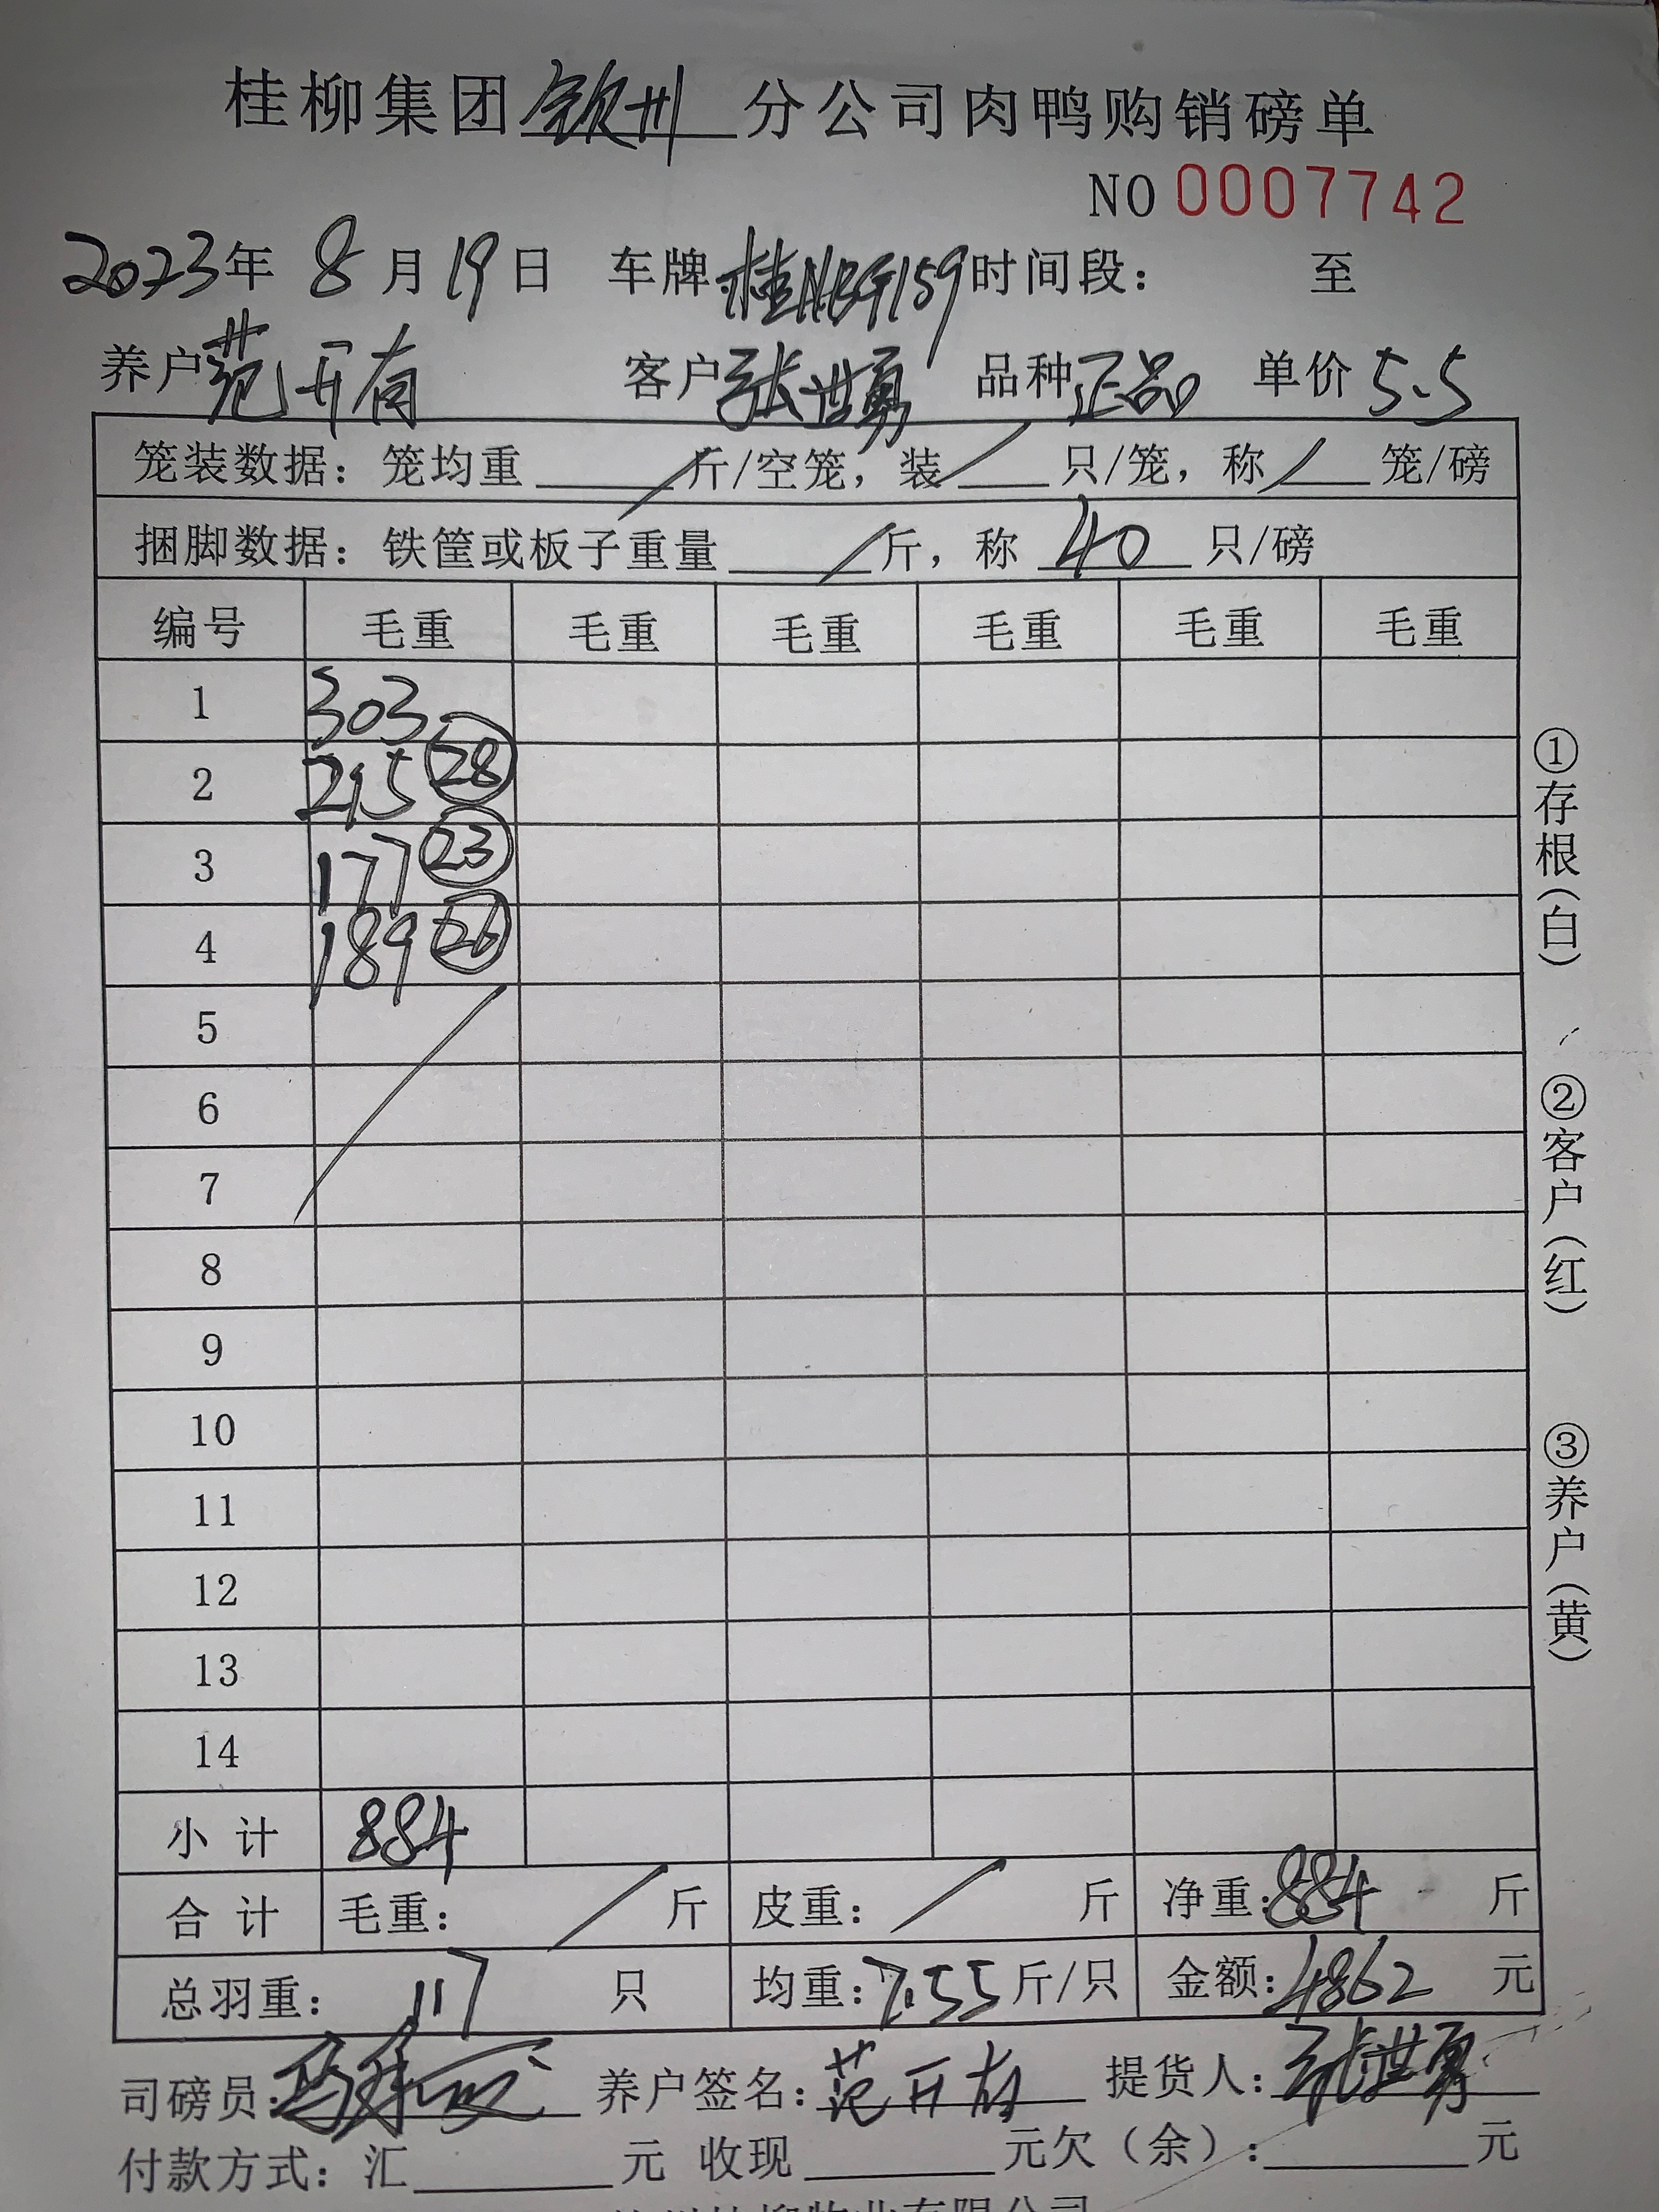 桂柳集团钦州分公司肉鸭购销磅单
NO 0007742
2023年 8月19日 车牌:桂NBG159时间段: 至
养户范开有 客户张世勇 品种正品 单价5.5
笼装数据: 笼均重 / 斤/空笼, 装 / 只/笼, 称 / 笼/磅
捆脚数据: 铁筐或板子重量 / 斤, 称 40 只/磅
编号 毛重 毛重 毛重 毛重 毛重 毛重
1 303
2 215 28
3 177 23
4 189 26
5
6
7
8
9
10
11
12
13
14
小计 884
合计 毛重: / 斤 皮重: / 斤 净重:884 斤
总羽重: 117 只 均重:7.55斤/只 金额:4862 元
司磅员: 养户签名:范开有 提货人:张世勇
付款方式: 汇 元 收现 元欠(余): 元
①存根(白)
②客户(红)
③养户(黄)